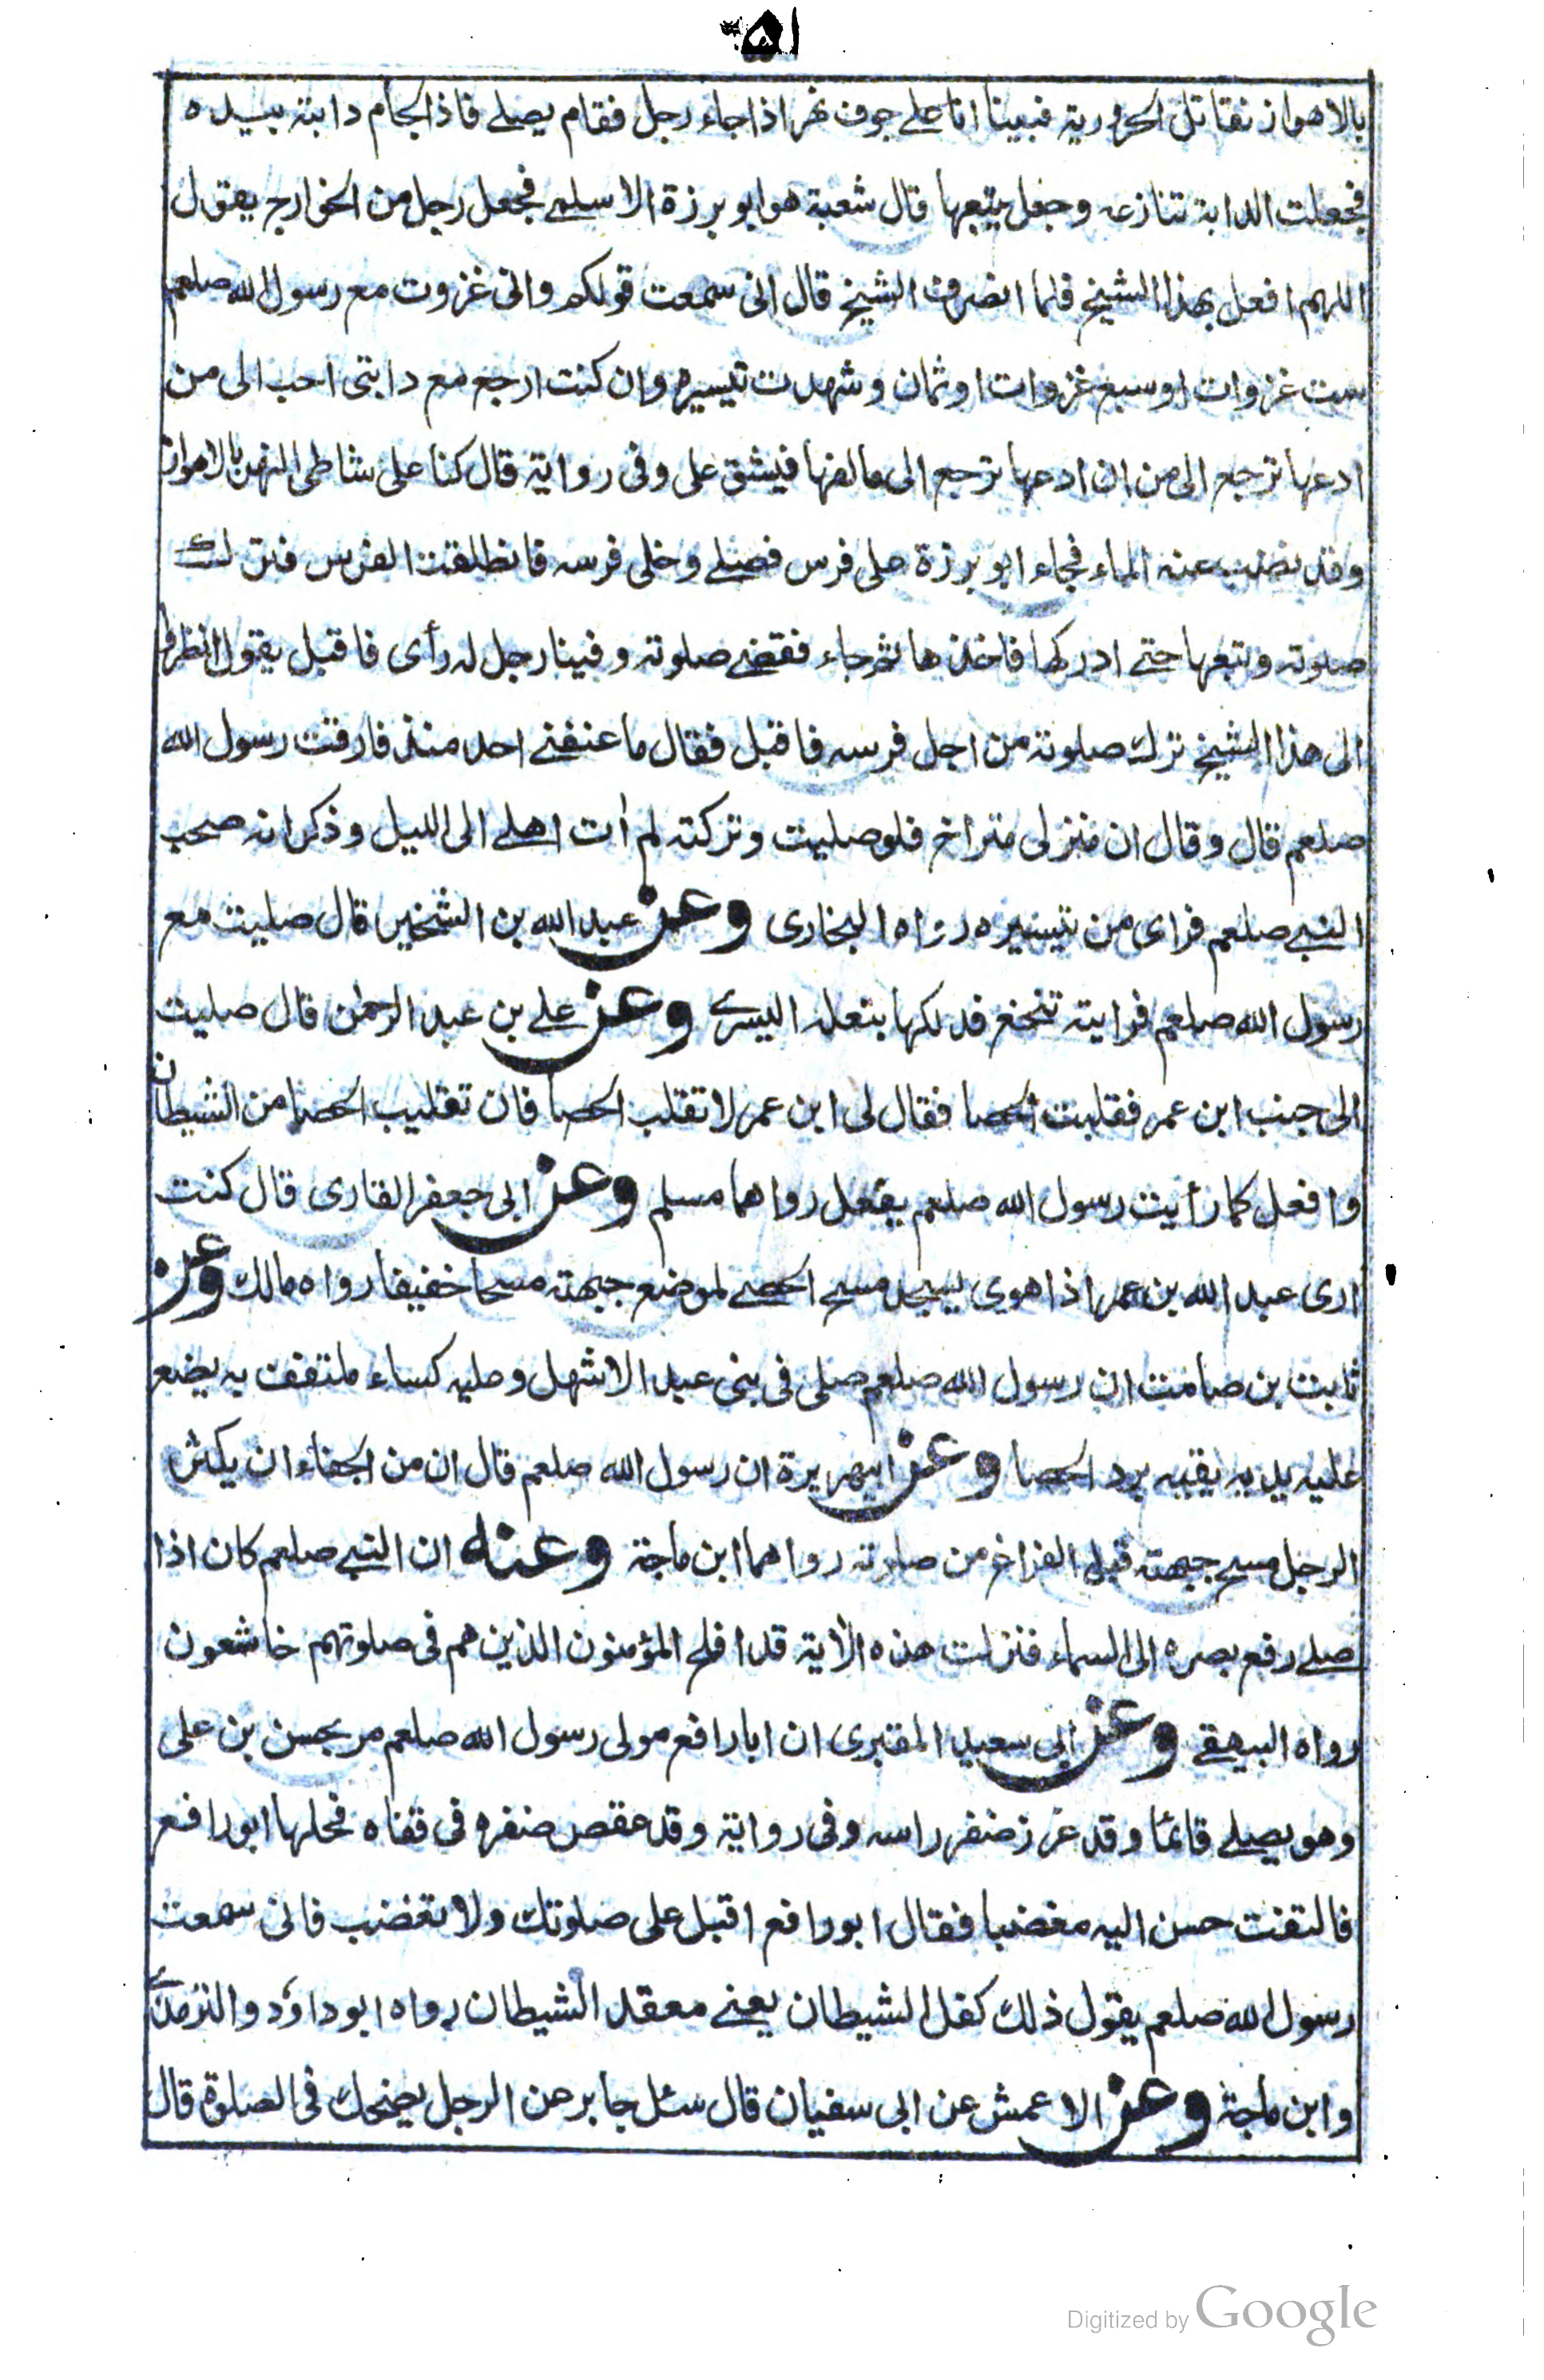 ٥١
بالاهواز نقاتل الحرورية فبينا انا على جوف نهر اذا جاء رجل فقام يصلے فاذا لجام دابته بيده
فجعلت الدابة تنازعه وجعل يتبعها قال شعبة هو ابو برزة الاسلمے فجعل رجل من الخوارج يقول
اللهم افعل بهذا الشيخ فلما انصرف الشيخ قال انى سمعت قولكم وانى غزوت مع رسول الله صلعم
ست غزوات او سبع غزوات او ثمان وشهدت تيسيره وان كنت ارجع مع دابتى احب الى من
ادعها ترجع الى من ان ادعها ترجع الى مالفها فيشق على وفى رواية قال كنا على شاطى النهر بالاهواز
وقد نضب عنه الماء فجاء ابو برزة على فرس فصلے وخلى فرسه فانطلقت الفرس فترك
صلوته وتبعها حتے ادركها فاخذها ثم جاء فقضے صلوته وفينا رجل له رأى فاقبل يقول انظروا
الى هذا الشيخ ترك صلوته من اجل فرسه فاقبل فقال ما عنفنے احد منذ فارقت رسول الله
صلعم قال وقال ان منزلى متراخ فلو صليت وتركته لم اٰت اهلے الى الليل وذكر انه صحب
النبے صلعم فراى من تيسيره رواه البخارى وعن عبد الله بن الشخير قال صليت مع
رسول الله صلعم فرايته تنخع فدلكها بنعله اليسرے وعن علے بن عبد الرحمٰن قال صليت
الى جنب ابن عمر فقلبت الحصا فقال لى ابن عمر لا تقلب الحصا فان تقليب الحصا من الشيطان
وافعل كما رأيت رسول الله صلعم يفعل رواهما مسلم وعن ابى جعفر القارى قال كنت
ارى عبد الله بن عمر اذا هوى يسجد مسح الحصے لموضع جبهته مسحا خفيفا رواه مالك وعن
ثابت بن صامت ان رسول الله صلعم صلى فى بنى عبد الاشهل وعليه كساء ملتفف به يضع
عليه يديه يقيه برد الحصا وعن ابيهريرة ان رسول الله صلعم قال ان من الجفاء ان يكثر
الرجل مسح جبهته قبل الفراغ من صلوته رواهما ابن ماجة وعنه ان النبے صلعم كان اذا
صلے رفع بصره الى السماء فنزلت هذه الاٰية قد افلح المؤمنون الذين هم فى صلوتهم خاشعون
رواه البيهقے وعن ابى سعيد المقبرى ان ابا رافع مولى رسول الله صلعم مر بحسن بن على
وهو يصلے قائما وقد غرز ضفر راسه وفى رواية وقد عقص ضفره فى قفاه فحلها ابو رافع
فالتفت حسن اليه مغضبا فقال ابو رافع اقبل على صلوتك ولا تغضب فانى سمعت
رسول الله صلعم يقول ذلك كفل الشيطان يعنے معقد الشيطان رواه ابو داؤد والترمذے
وابن ماجة وعن الاعمش عن ابى سفيان قال سئل جابر عن الرجل يضحك فى الصلوة قال
Digitized by Google